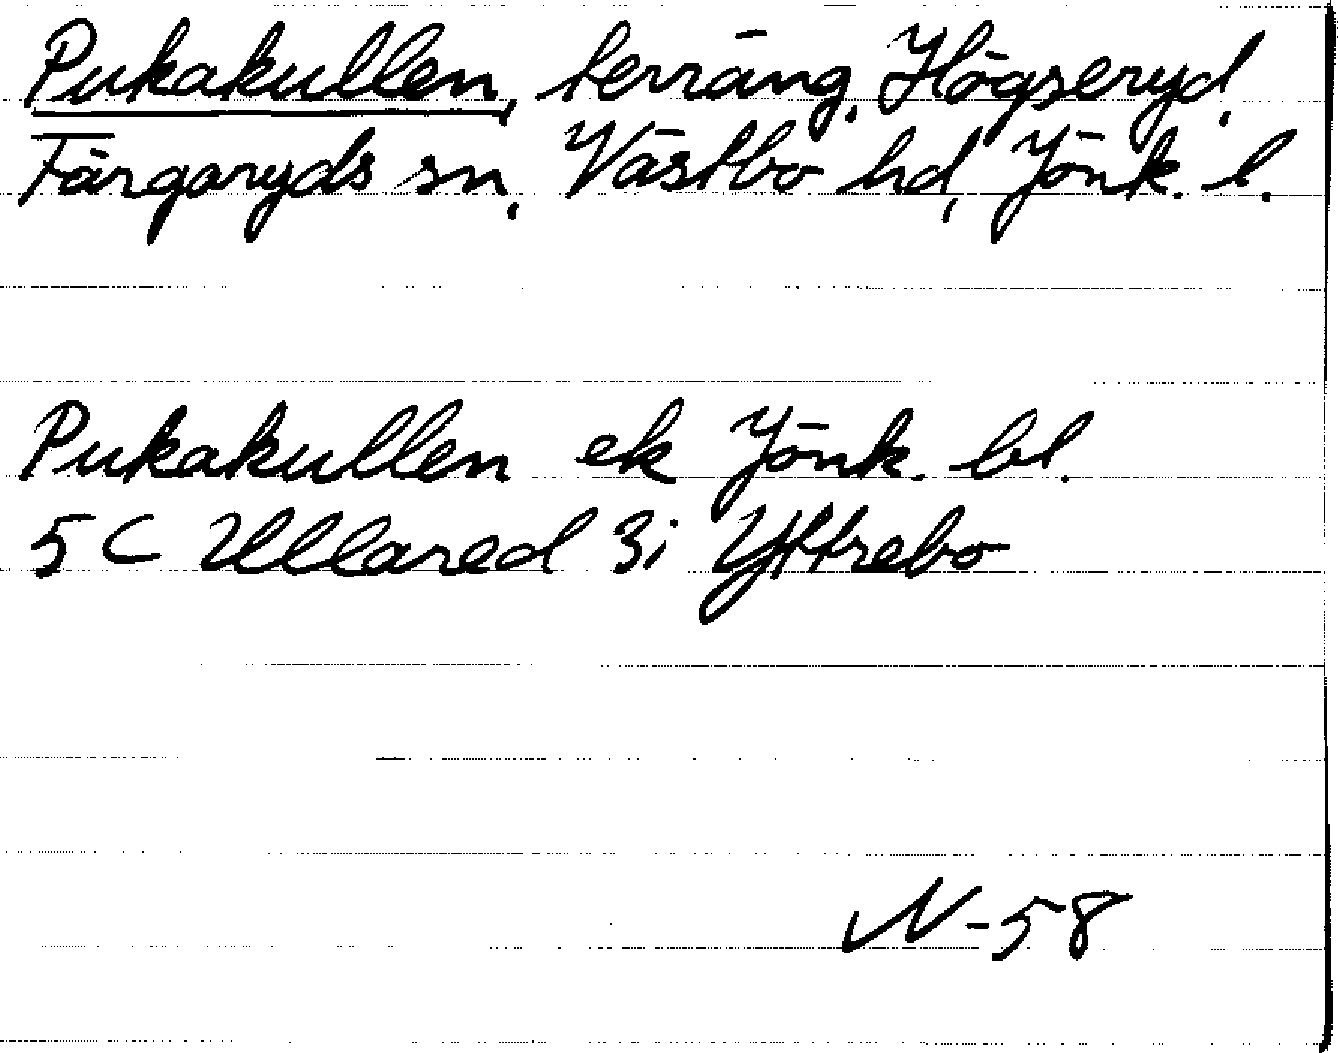 Pukakullen, terräng, Högseryd,
Färgaryds sn, Västbo hd, Jönk. l.
Pukakullen ek Jönk. bl.
5C Ullared 3i Yttrebo
N-58